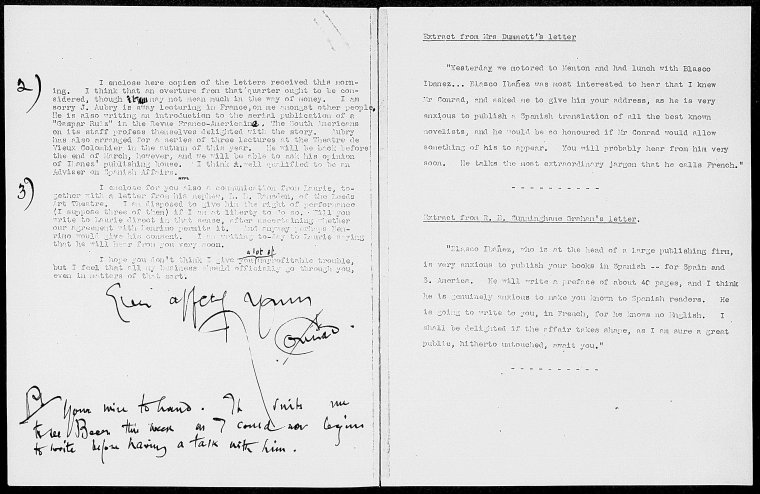 2)
I enclose here copies of the letters received this morn-
ing. I think that an overture from that quarter ought to be con-
sidered, though it may not mean much in the way of money. I am
sorry J. Aubry is away lecturing in France, on me amongst other people.
He is also writing an introduction to the serial publication of a
"Gaspar Ruiz" in the Revue Franco-Americaine. The South Americans
on its staff profess themselves delighted with the story. Aubry
has also arranged for a series of three lectures at the Theatre du
Vieux Colombier in the autumn of this year. He will be back before
the end of March, however, and we will be able to ask his opinion
of Ibanez' publishing house. I think well qualified to be an
Adviser on Spanish Affairs.
3)
I enclose for you also a communication from Laurie, to-
gether with a letter from his nephew, of the Leeds
Art Theatre. I am disposed to give him the right of performance
(I suppose three of them) if I am at liberty to do so. Will you
write to Laurie direct in that sense, after ascertaining whether
our agreement with permits it. And anyway perhaps
would give his consent. I am writing to-day to Laurie saying
that he will hear from you very soon.
a lot of
I hope you don't think I give you unprofitable trouble,
but I feel that all my business should officially go through you,
even in matters of that sort.
Ever affcly Yours
Conrad.
PS Your wire to hand. It suits me
to see this week as I could not begin
to write before having a talk with him.
Extract from Mrs Dummett's letter
"Yesterday we motored to Menton and had lunch with Blasco
Ibanez... Blasco Ibañez was most interested to hear that I knew
Mr Conrad, and asked me to give him your address, as he is very
anxious to publish a Spanish translation of all the best known
novelists, and he would be so honoured if Mr Conrad would allow
something of his to appear. You will probably hear from him very
soon. He talks the most extraordinary jargon that he calls French."
- - - - - - - - - -
Extract from R. B. Cunninghame Graham's letter.
"Blasco Ibañez, who is at the head of a large publishing firm,
is very anxious to publish your books in Spanish -- for Spain and
S. America. He will write a preface of about 40 pages, and I think
he is genuinely anxious to make you known to Spanish readers. He
is going to write to you, in French, for he knows no English. I
shall be delighted if the affair takes shape, as I am sure a great
public, hitherto untouched, await you."
- - - - - - - - - -